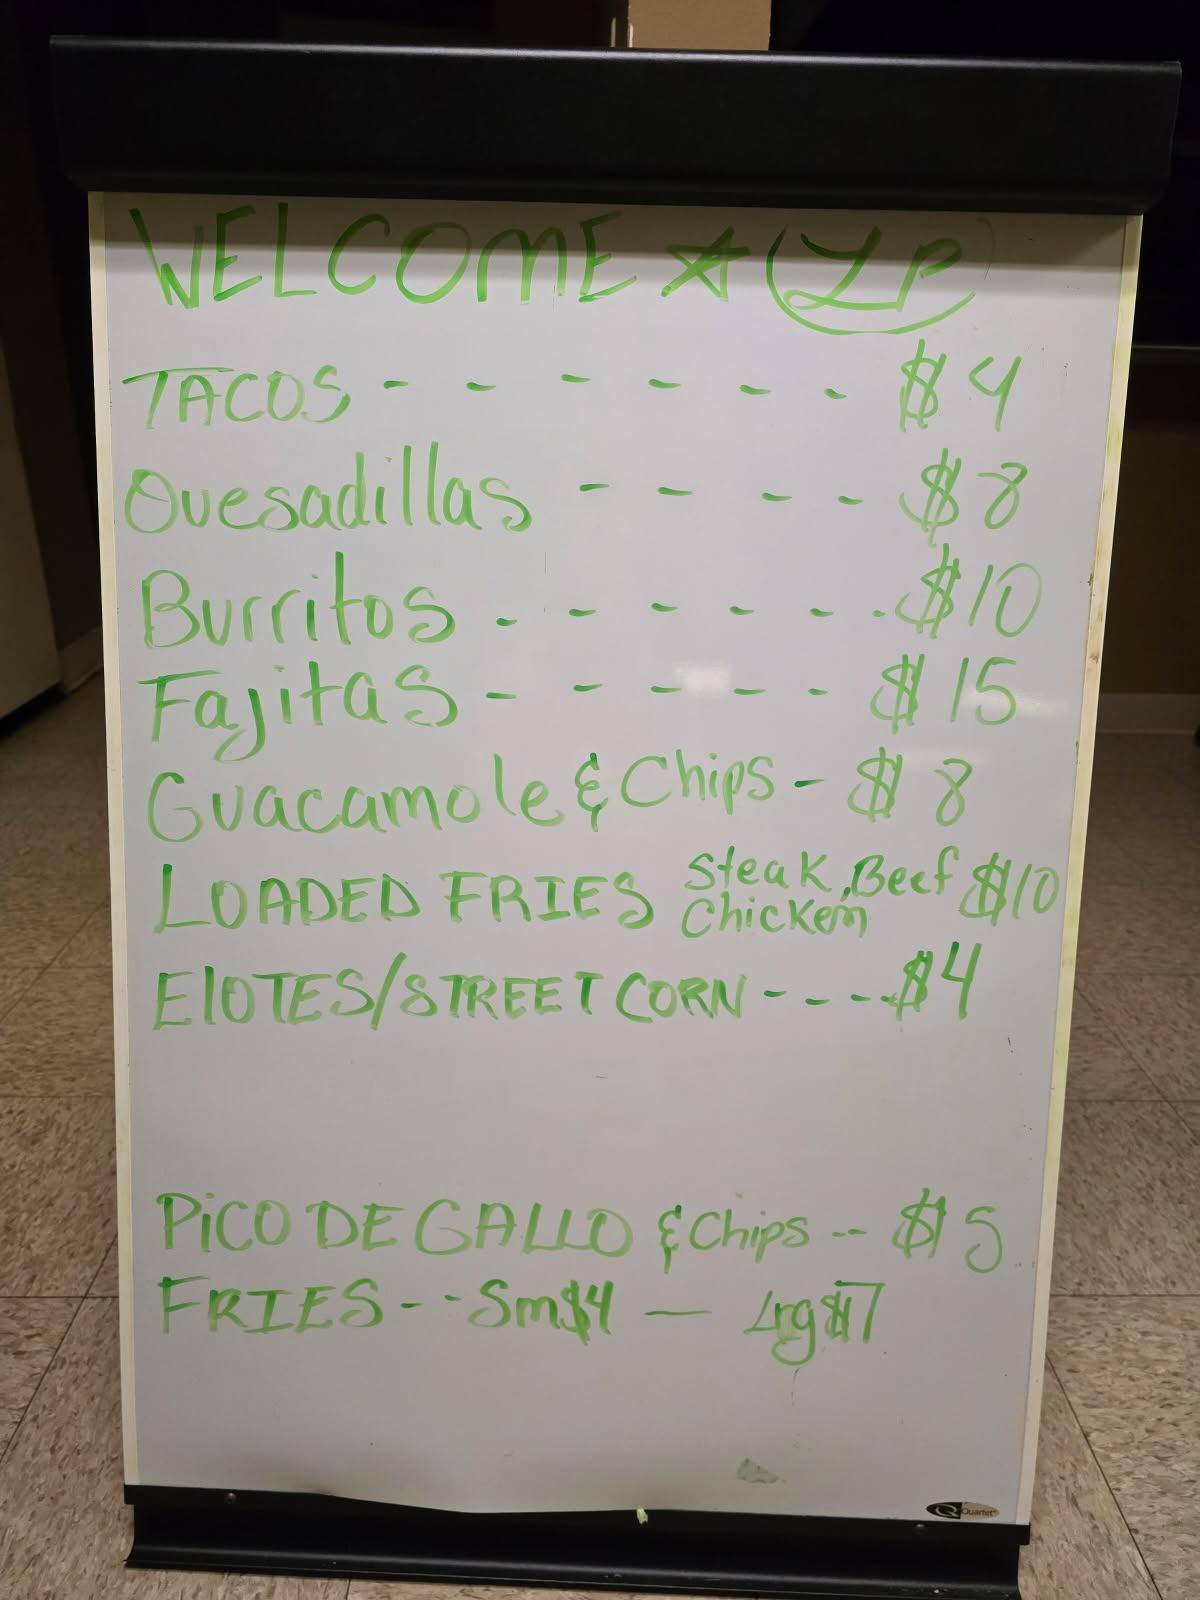 WELCOME ☆ LP
TACOS - - - - - - $4
Quesadillas - - - - $8
Burritos - - - - - - $10
Fajitas - - - - - $15
Guacamole & Chips - $8
LOADED FRIES Steak, Beef Chicken $10
ElOTES/STREET CORN - - - - $4
PiCO DE GALLO & Chips -- $5
FRIES - - Sm $4 — Lrg $7
Quartet